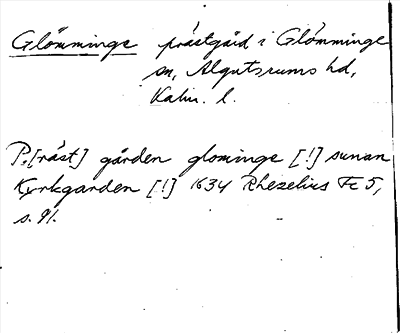 Glömminge prästgård i Glömminge
sn, Algutsrums hd,
Kalm. l.
P.[räst] gården glominge [!] sunan
Kyrkgarden [!] 1634 Rhezelius Fc 5,
s. 91.